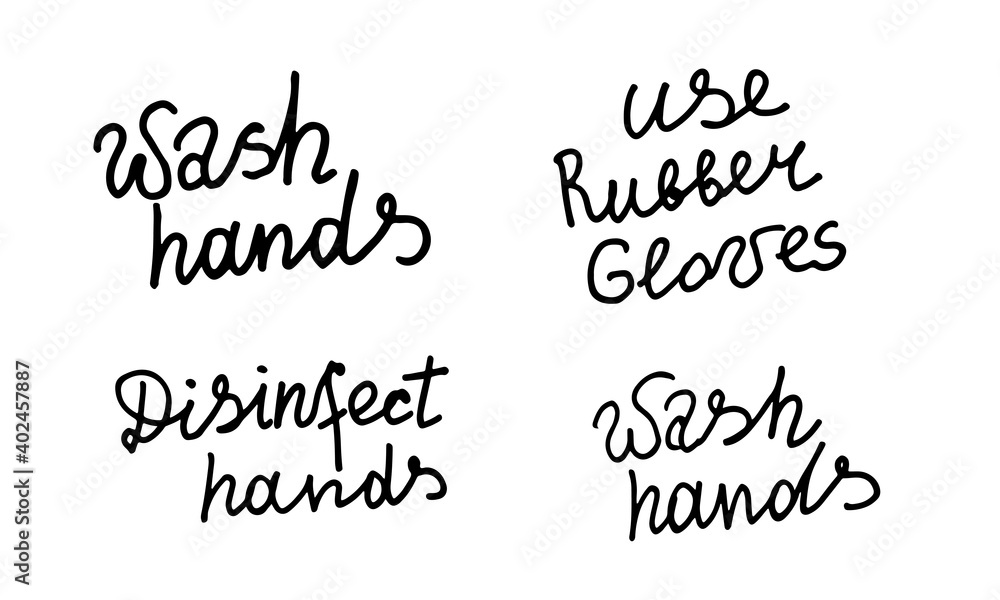 Wash
hands
use
Rubber
Gloves
Disinfect
hands
Wash
hands
Adobe Stock | #402457887
Adobe Stock